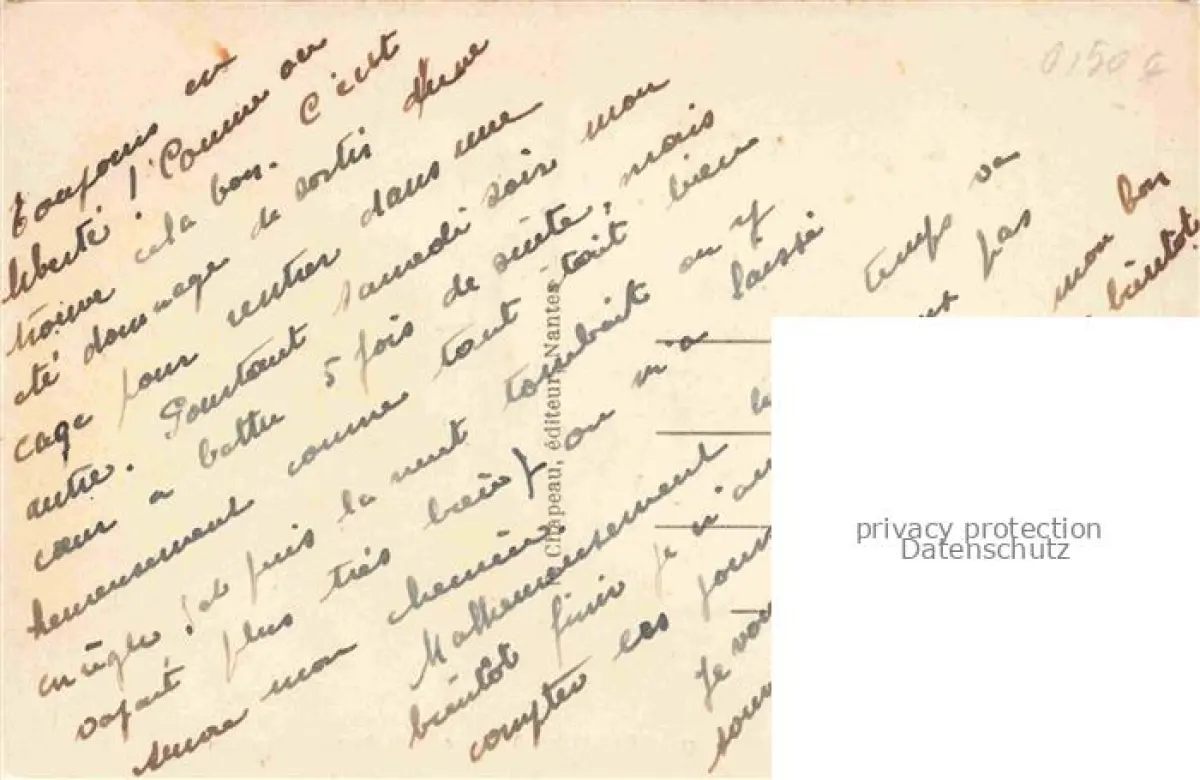 Toujours en
liberté ! Comme on
trouve cela bon. C'est
été dommage de sortir d'une
cage pour rentrer dans une
autre. Pourtant samedi soir mon
cœur a battu 5 fois de suite, mais
heureusement comme tout était bien
en règle, et puis la nuit tombait on y
voyait plus très bien, on m'a laissé
suivre mon chemin.
Malheureusement le temps va
bientôt finir je n'au pas
compter ces jours
Je vou mon bon
souv bientôt
0,50 €
Chapeau, éditeur, Nantes
privacy protection
Datenschutz